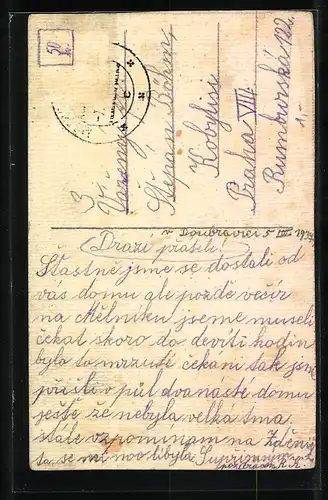 50
Vážený pan
Štěpán Böhm,
Kobylisy
Praha VIII.
Rumburská 122.
1,-
v Doubravici 5 VIII 1934
Drazí přátelé!
Šťastně jsme se dostali od
vás domu ale pozdě večír
na Mělníku jseme museli
čekat skoro do devíti hodin
bylo to mrzuté čekáni tak jsme
přišli v půl dvanásté domu
ještě že nebyla velka tma
stále vzpomínam na Zděnku
ta se mi moc líbyla